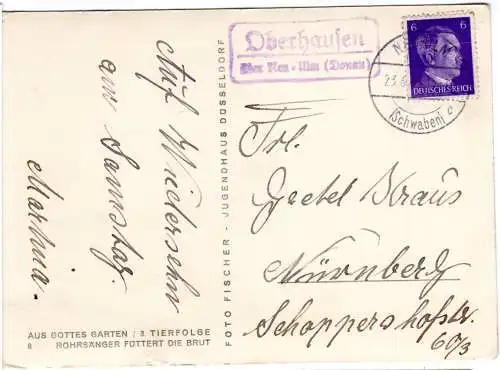 Oberhausen
über Neu-Ulm (Donau)
6 6
DEUTSCHES REICH
(Schwaben) c
Auf Wiedersehn
am Samstag.
Martina.
FOTO FISCHER - JUGENDHAUS DÜSSELDORF
Frl.
Gretel Kraus
Nürnberg
Schoppershofstr.
60/3
AUS GOTTES GARTEN / 3. TIERFOLGE
8 ROHRSÄNGER FÜTTERT DIE BRUT